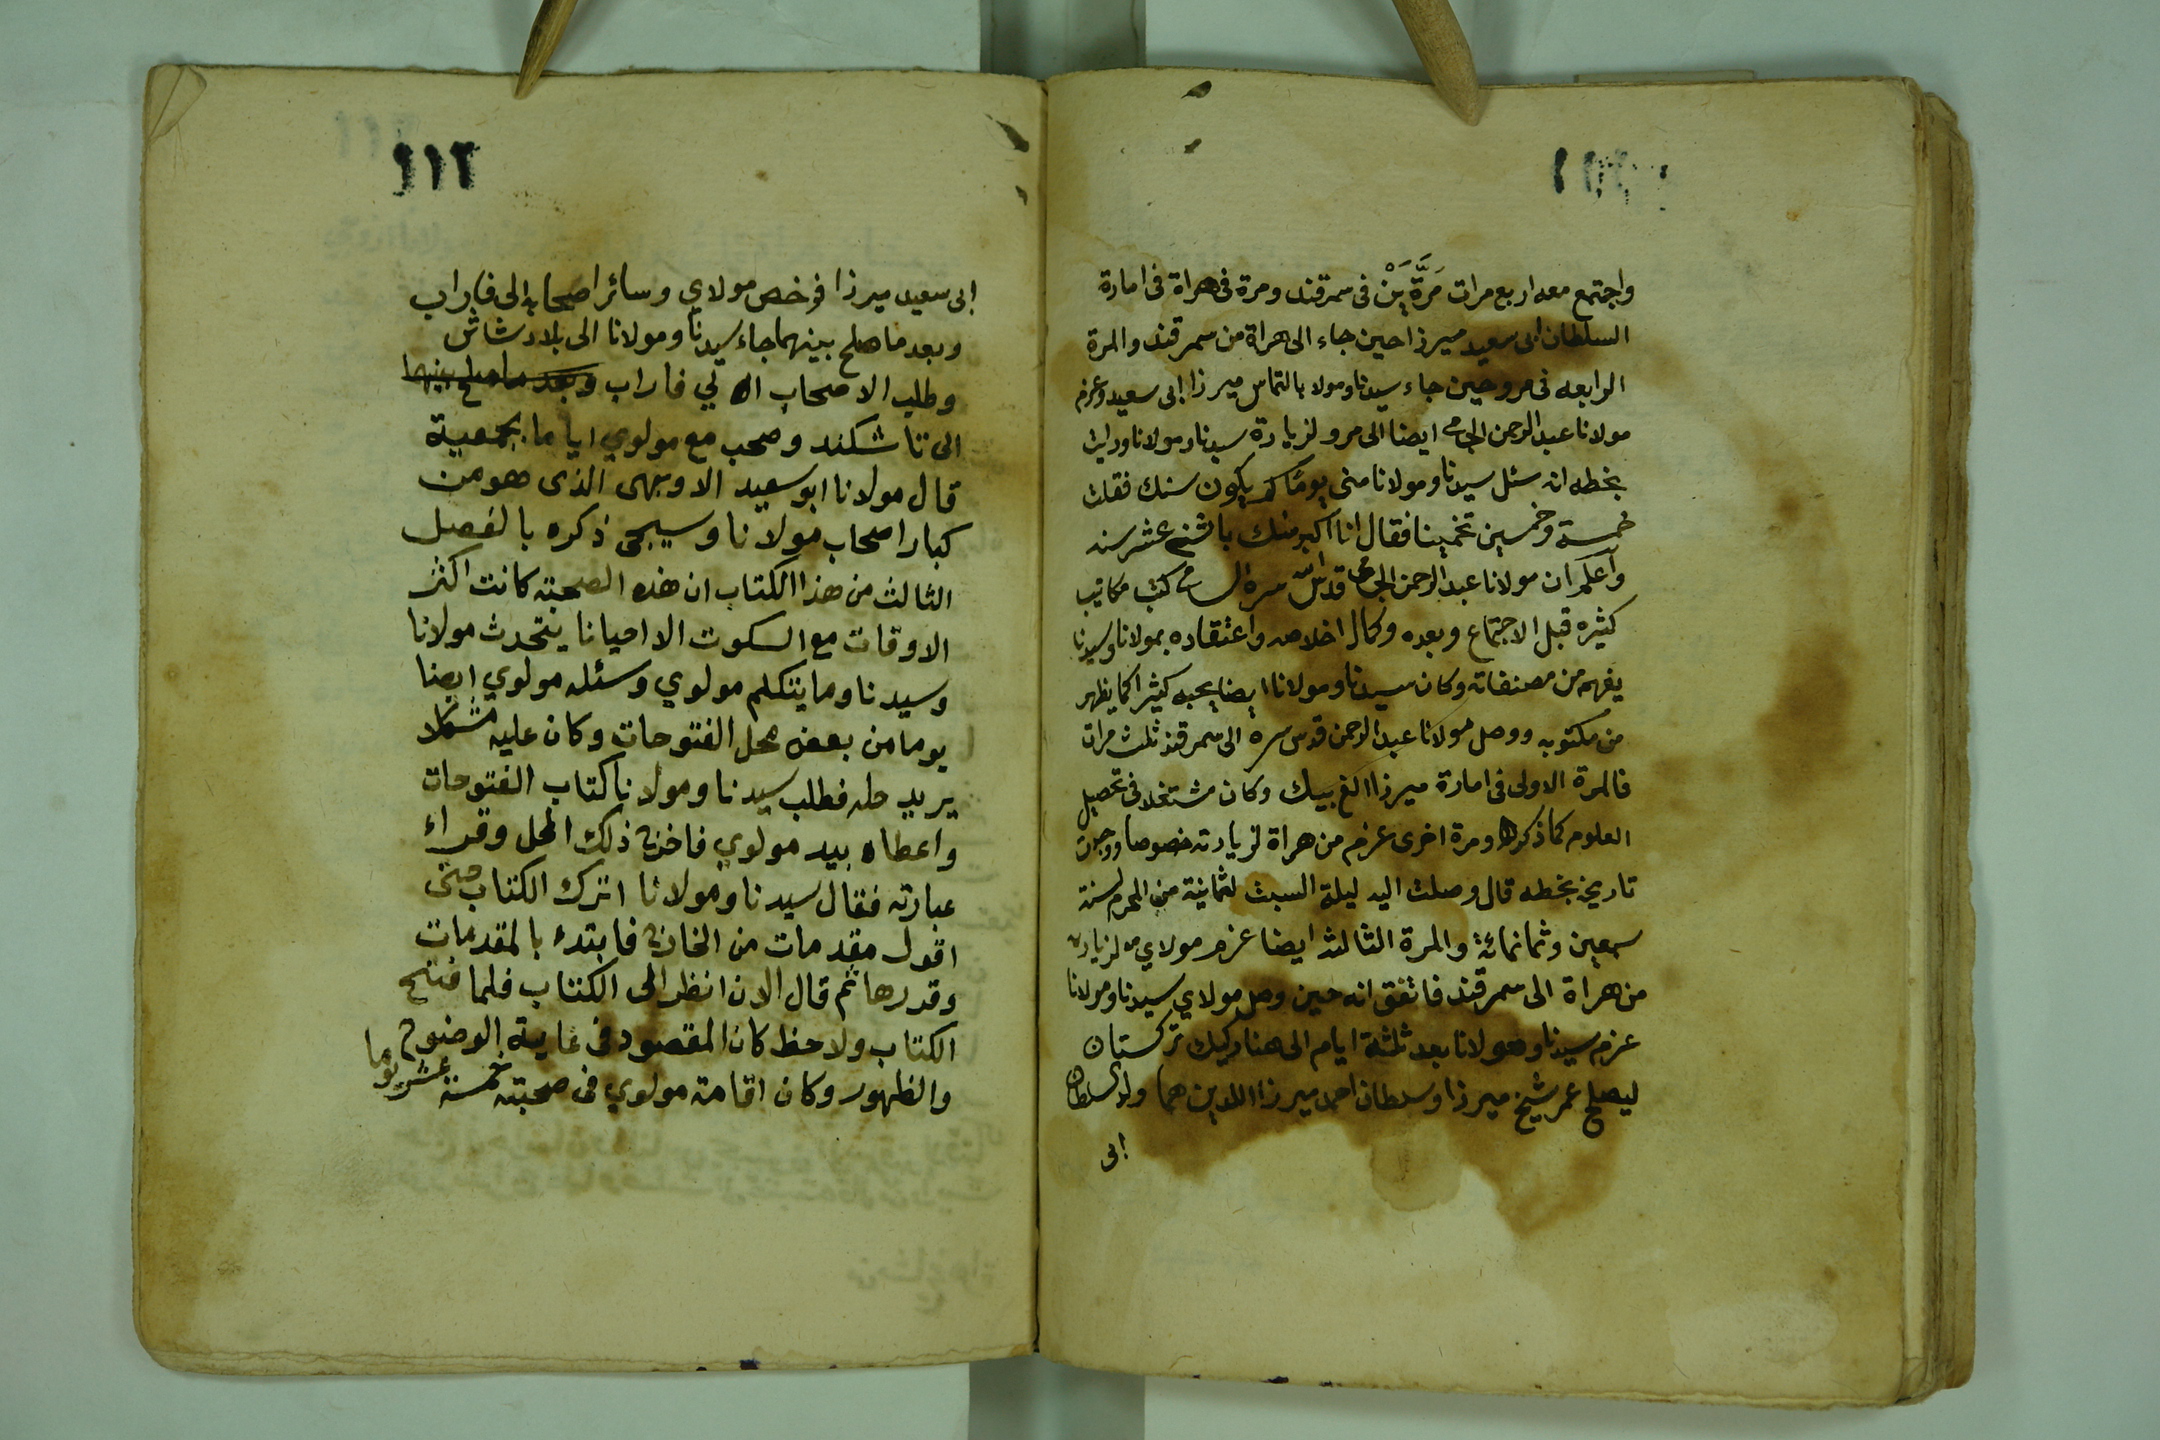 واجتمع معه اربع مرات مَرَّتَيْن فى سمرقند ومرة فى هراة فى امارة
السلطان ابى سعيد ميرزا حين جاء الى هراة من سمرقند والمرة
الرابعه فى مرو حين جاء سيدنا ومولانا بالتماس ميرزا ابى سعيد وعزم
مولانا عبد الرحمن الجامى ايضا الى مرو لزيارة سيدنا ومولانا ورايت
بخطه انه سئل سيدنا ومولانا منى يومًا كم يكون سنك فقلت
خمسة وخمسين تخمينا فقال انا اكبر منك باثنى عشر سنه
واعلم ان مولانا عبد الرحمن الجامى قدس الله سره السامى كتب مكاتيب
كثيره قبل الاجتماع وبعده وكمال اخلاصه واعتقاده بمولانا وسيدنا
يفهم من مصنفاته وكان سيدنا ومولانا ايضا يحبه كثيرا كما يظهر
من مكتوبه ووصل مولانا عبد الرحمن قدس سره الى سمرقند ثلث مرات
فالمرة الاولى فى امارة ميرزا الغ بيك وكان مشتغلا فى تحصيل
العلوم كما ذكر ومرة اخرى عزم من هراة لزيارته خصوصا ووجدت
تاريخ بخطه قال وصلت اليه ليلة السبت لثمانية من المحرم لسنة
سبعين وثمانمائة والمرة الثالثه ايضا عزم مولاي لزيارته
من هراة الى سمرقند فاتفق انه حين وصل مولاي سيدنا ومولانا
عزم سيدنا ومولانا بعد ثلثة ايام الى تركستان
ليصلح عمر شيخ ميرزا وسلطان احمد ميرزا اللذين هما ولد السلطان
ابى
١١٢
ابى سعيد ميرزا فرخص مولاي وسائر اصحابه الى فاراب
وبعد ما صلح بينهما جاء سيدنا ومولانا الى بلاد شاش
وطلب الاصحاب الى فاراب وبعد ما صلح بينهما
الى تاشكند وصحب مع مولوي اياما بجمعية
قال مولانا ابو سعيد الاوبهى الذى هو من
كبار اصحاب مولانا وسيجى ذكره بالفصل
الثالث من هذا الكتاب ان هذه الصحبته كانت اكثر
الاوقات مع السكوت الا احيانا يتحدث مولانا
وسيدنا وما يتكلم مولوي وسئله مولوي ايضا
يوما من بعض محل الفتوحات وكان عليه مشكلا
يريد حله فطلب سيدنا ومولانا كتاب الفتوحات
واعطاه بيد مولوي فاخرج ذلك المحل وقراء
عبارته فقال سيدنا ومولانا اترك الكتاب حتى
اقول مقدمات من الخارج فابتدء بالمقدمات
وقدرها ثم قال الان انظر الى الكتاب فلما فتح
الكتاب ولاحظ كان المقصود فى غاية الوضوح
والظهور وكان اقامة مولوي فى صحبته خمسة عشر يوما